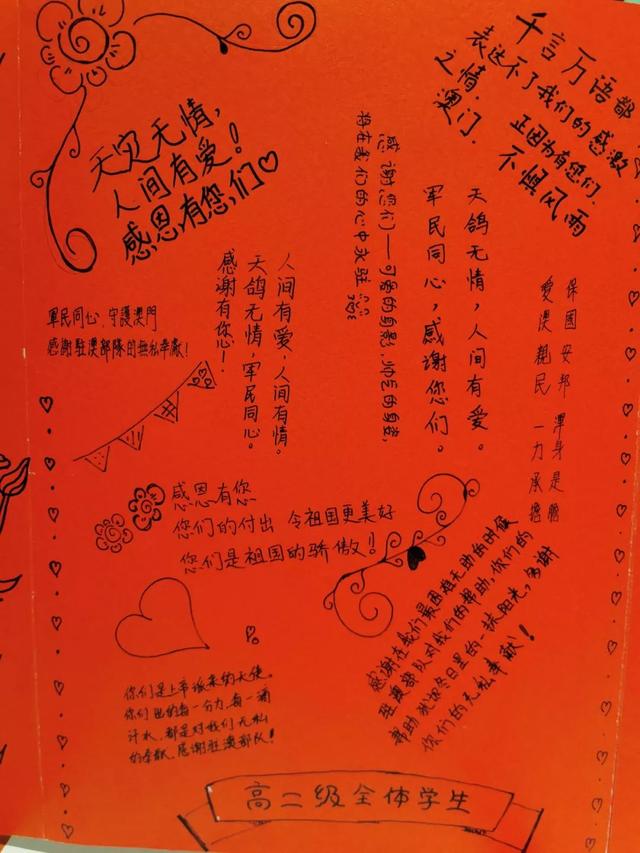 天灾无情，
人间有爱！
感恩有您,们♡
千言万语都
表达不了我们的感激
之情.
澳门.
正因为有您们.
不惧风雨
感谢您们——可爱的身影，帅气的身姿，
将在我们的心中永驻
天鸽无情，人间有爱。
軍民同心，感谢您们。
保國安邦 渾身是膽
愛澳親民 一力承擔
軍民同心、守護澳門
感謝駐澳部隊的無私奉獻！
人间有爱，人间有情。
天鸽无情，軍民同心。
感谢有您们
感恩有您
您们的付出 令祖国更美好
您们是祖国的骄傲！
感谢在我们最困难无助的时候
驻澳部队对我们的帮助，你们的
帮助就如冬日里的一抹阳光，多谢
你们的无私奉献！
你们是上帝派来的天使。
你们出的每一分力，每一滴
汗水，都是对我们无私
的奉献，感谢驻澳部队！
高二级全体学生